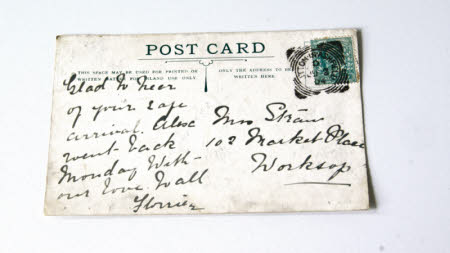 POST CARD
THIS SPACE MAY BE USED FOR PRINTED OR
WRITTEN MATTER FOR INLAND USE ONLY.
ONLY THE ADDRESS TO BE
WRITTEN HERE.
Glad to hear
of your safe
arrival. Alec
went back
Monday With
our love to all
Florrie
Mrs Straw
102 Market Place
Worksop